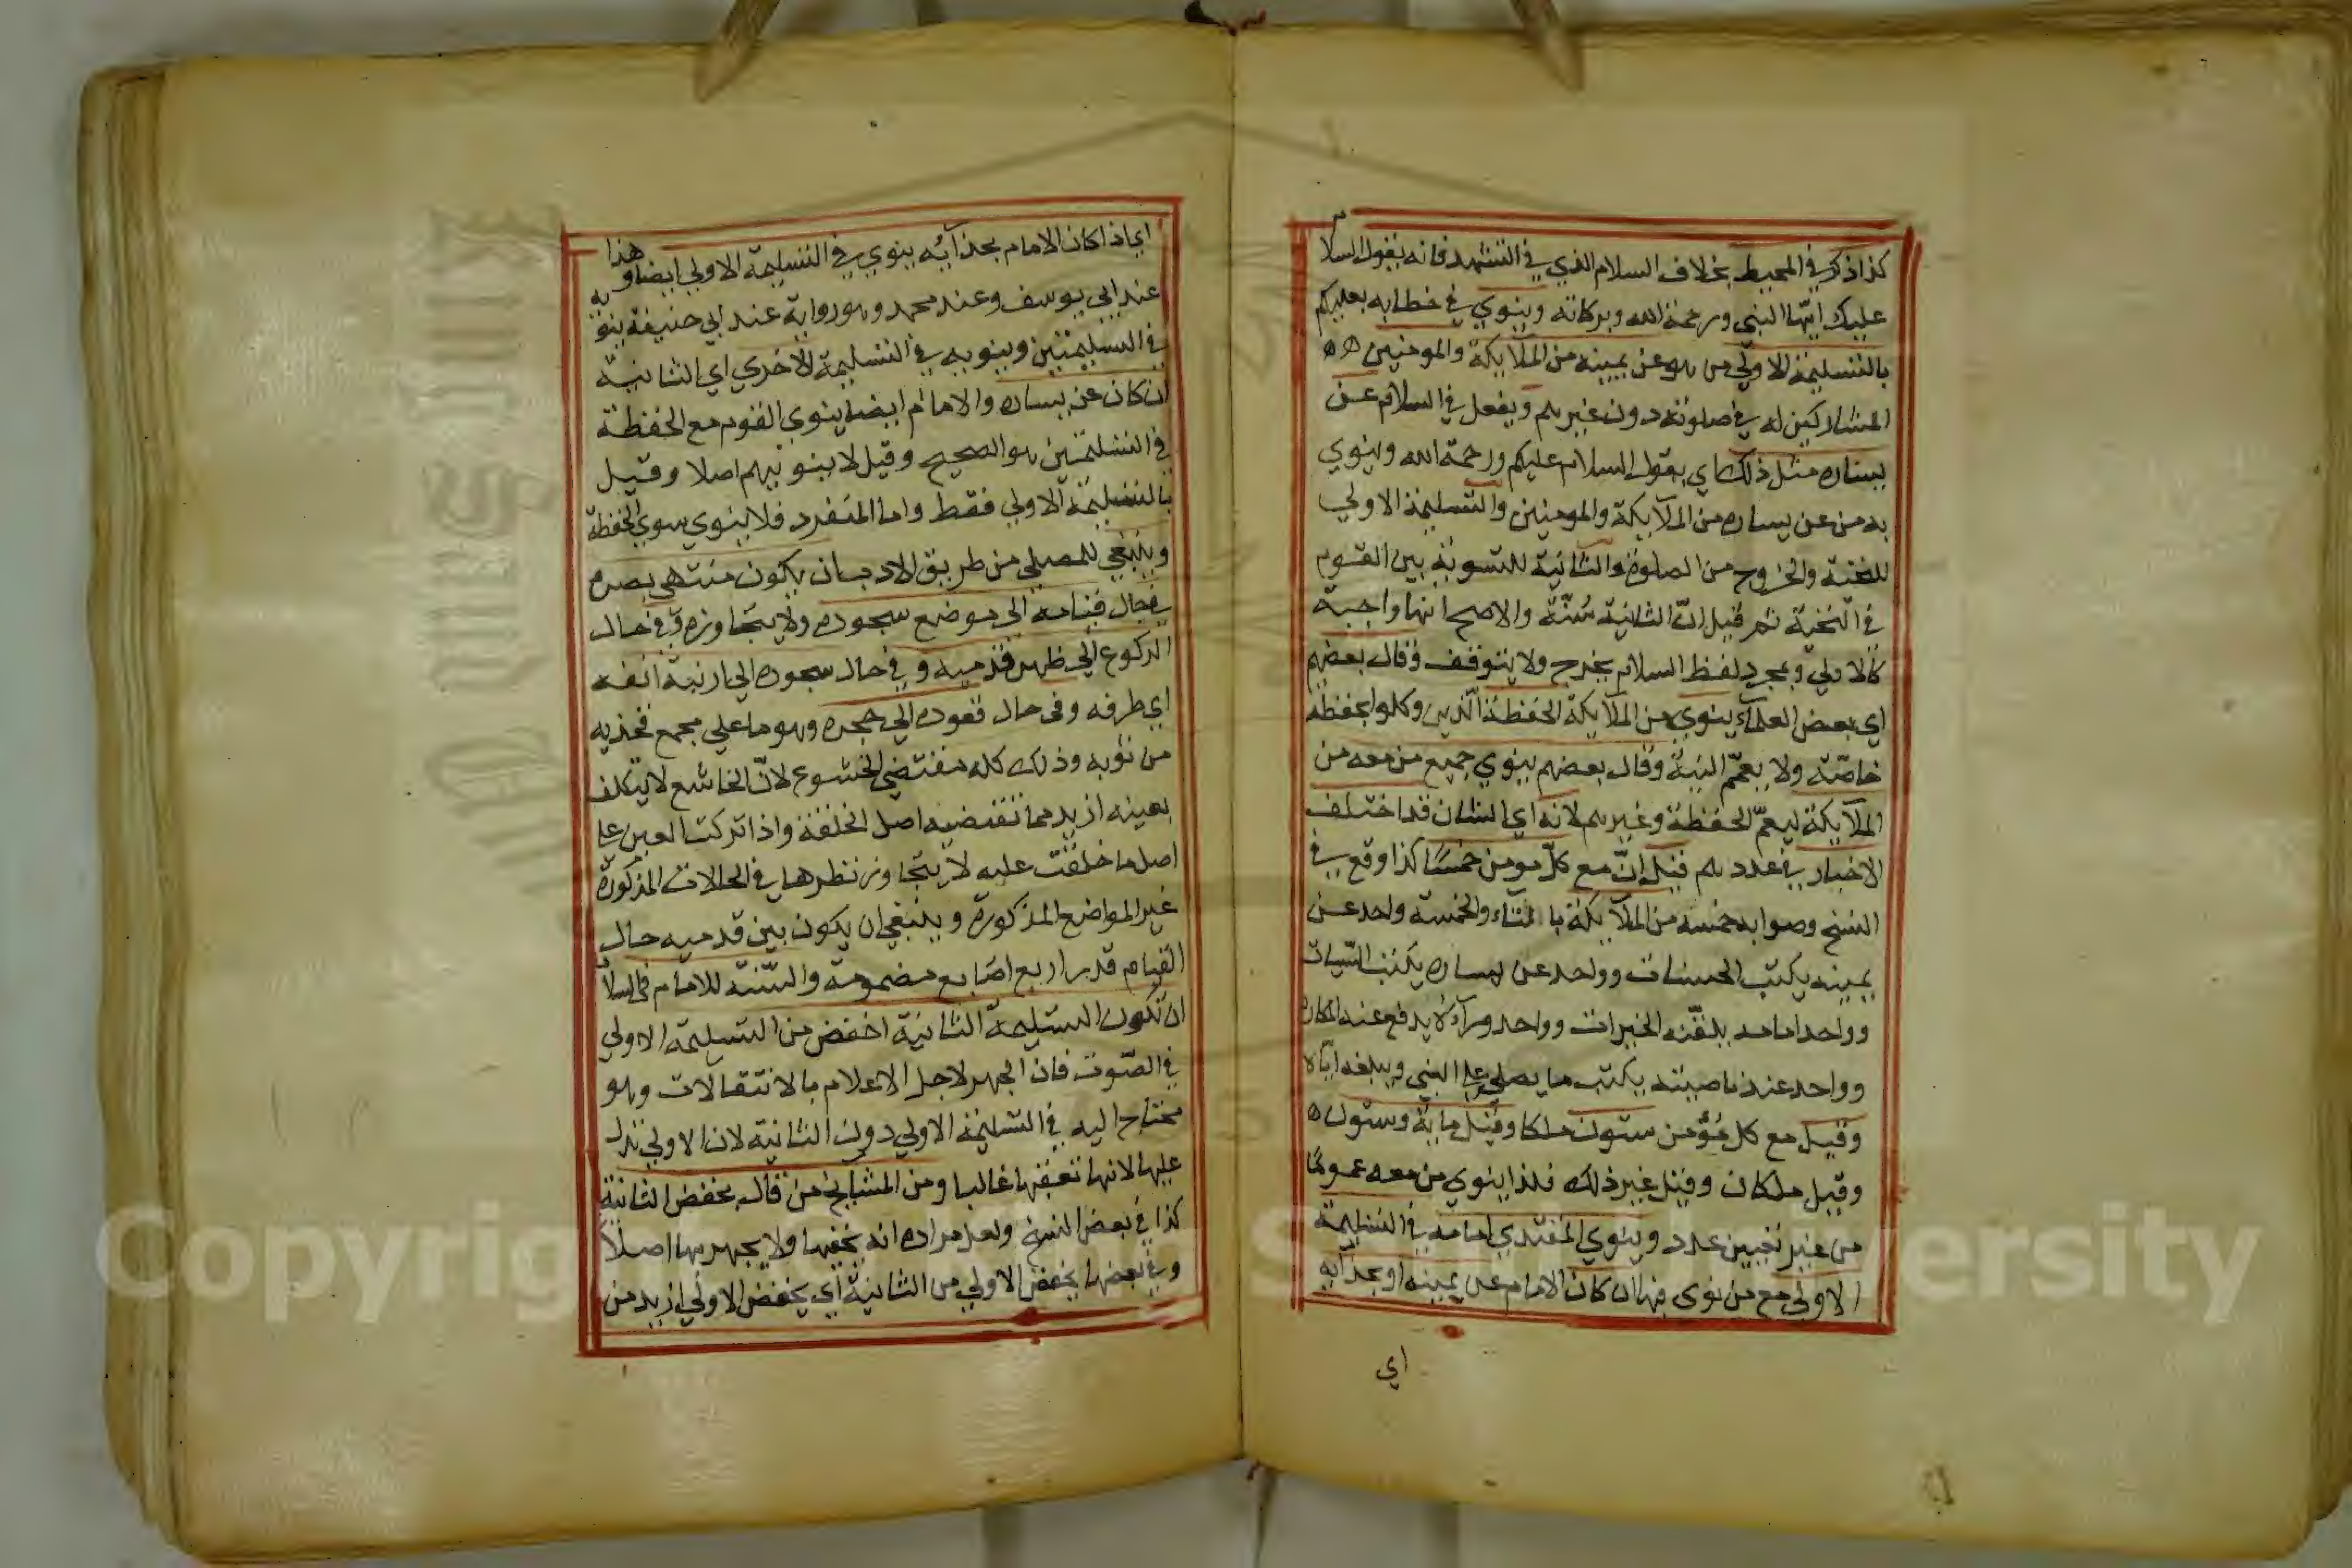 كذا ذكر في المحيط بخلاف السلام الذي في التشهد فانه يقول السلام
عليك ايّها النبي ورحمة الله وبركاته وينوي في خطابه بعليكم
بالتسليمة الاولي من هو عن يمينه من الملآيكة والمومنين
المشاركين له في صلوته دون غيرهم ويفعل في السلام عن
يساره مثل ذلك اي يقول السلام عليكم ورحمة الله وينوي
به من عن يساره من الملآيكة والمومنين والتسليمة الاولي
للتحية والخروج من الصلوة والثانية للتسوية بين القوم
في التحية ثم قيل انّ الثانية سُنّة والاصح انها واجبة
كالاولي وبمجرد لفظ السلام يخرج ولا يتوقف وقال بعضهم
اي بعض العلمآء ينوي من الملآيكة الحفظة الذين وكلوا بحفظه
خاصّة ولا يعمّم النية وقال بعضهم ينوي جميع من معه من
الملآيكة ليعمّ الحفظة وغيرهم لانه اي الشان قد اختلف
الاخبار في عددهم قيل انّ مع كلّ مومن خمسًا كذا وقع في
النسخ وصوابه خمسة من الملآيكة بالتاء والخمسة واحد عن
يمينه يكتب الحسنات وواحد عن يساره يكتب السّيات
وواحد امامه يلقّنه الخيرات وواحد ورآءه يدفع عنه المكاره
وواحد عند ناصيته يكتب ما يصلي علي النبي ويبلغه ايّاه
وقيل مع كل مُؤمن ستون ملكا وقيل ماية وستون
وقيل ملكان وقيل غير ذلك فلذا ينوي من معه عمومًا
من غير تعيين عدد وينوي المقتدي امامه في التسليمة
الاولي مع من نوي فيها ان كان الامام عن يمينه او بحذآيه
اي
اي اذا كان الامام بحذآيُه ينوي في التسليمة الاولي ايضا وهذا
عند ابي يوسف وعند محمد وهو رواية عند ابي حنيفة ينويه
في التسليمتين وينويه في التسليمة الاخري اي الثانية
ان كان عن يساره والامام ايضا ينوي القوم مع الحفظة
في التسليمتين هو الصحيح وقيل لا ينويهم اصلا وقيل
بالتسليمة الاولي فقط واما المنفرد فلا ينوي سوي الحفظة
وينبغي للمصلي من طريق الادب ان يكون منتهي بصره
في حال قيامه الي موضع سجوده ولا يتجاوزه وفي حال
الركوع الي ظهر قدميه وفي حال سجوده الي ارنبة انفه
اي طرفه وفي حال قعوده الي حجره وهو ما علي مجمع فخذيه
من ثوبه وذلك كله مقتضي الخشوع لانّ الخاشع لا يتكلف
بعينه ازيد مما تقتضيه اصل الخلقة واذا تركت العين علي
اصل ما خلقت عليه لا يتجاوز نظرها في الحالات المذكورة
غير المواضع المذكورة وينبغي ان يكون بين قدميه حال
القيام قدر اربع اصابع مضمومة والسّنة للامام في السلام
ان تكون التسليمة الثانية اخفض من التسليمة الاولي
في الصّوت فان الجهر لاجل الاعلام بالانتقالات وهو
محتاج اليه في التسليمة الاولي دون الثانية لان الاولي تدل
عليها لانها تعقبها غالبا ومن المشايخ من قال يخفض الثانية
كذا في بعض النسخ ولعل مراده انه يخفيها ولا يجهر بها اصلًا
وفي بعضها يخفض الاولي من الثانية اي يخفض الاولي ازيد من